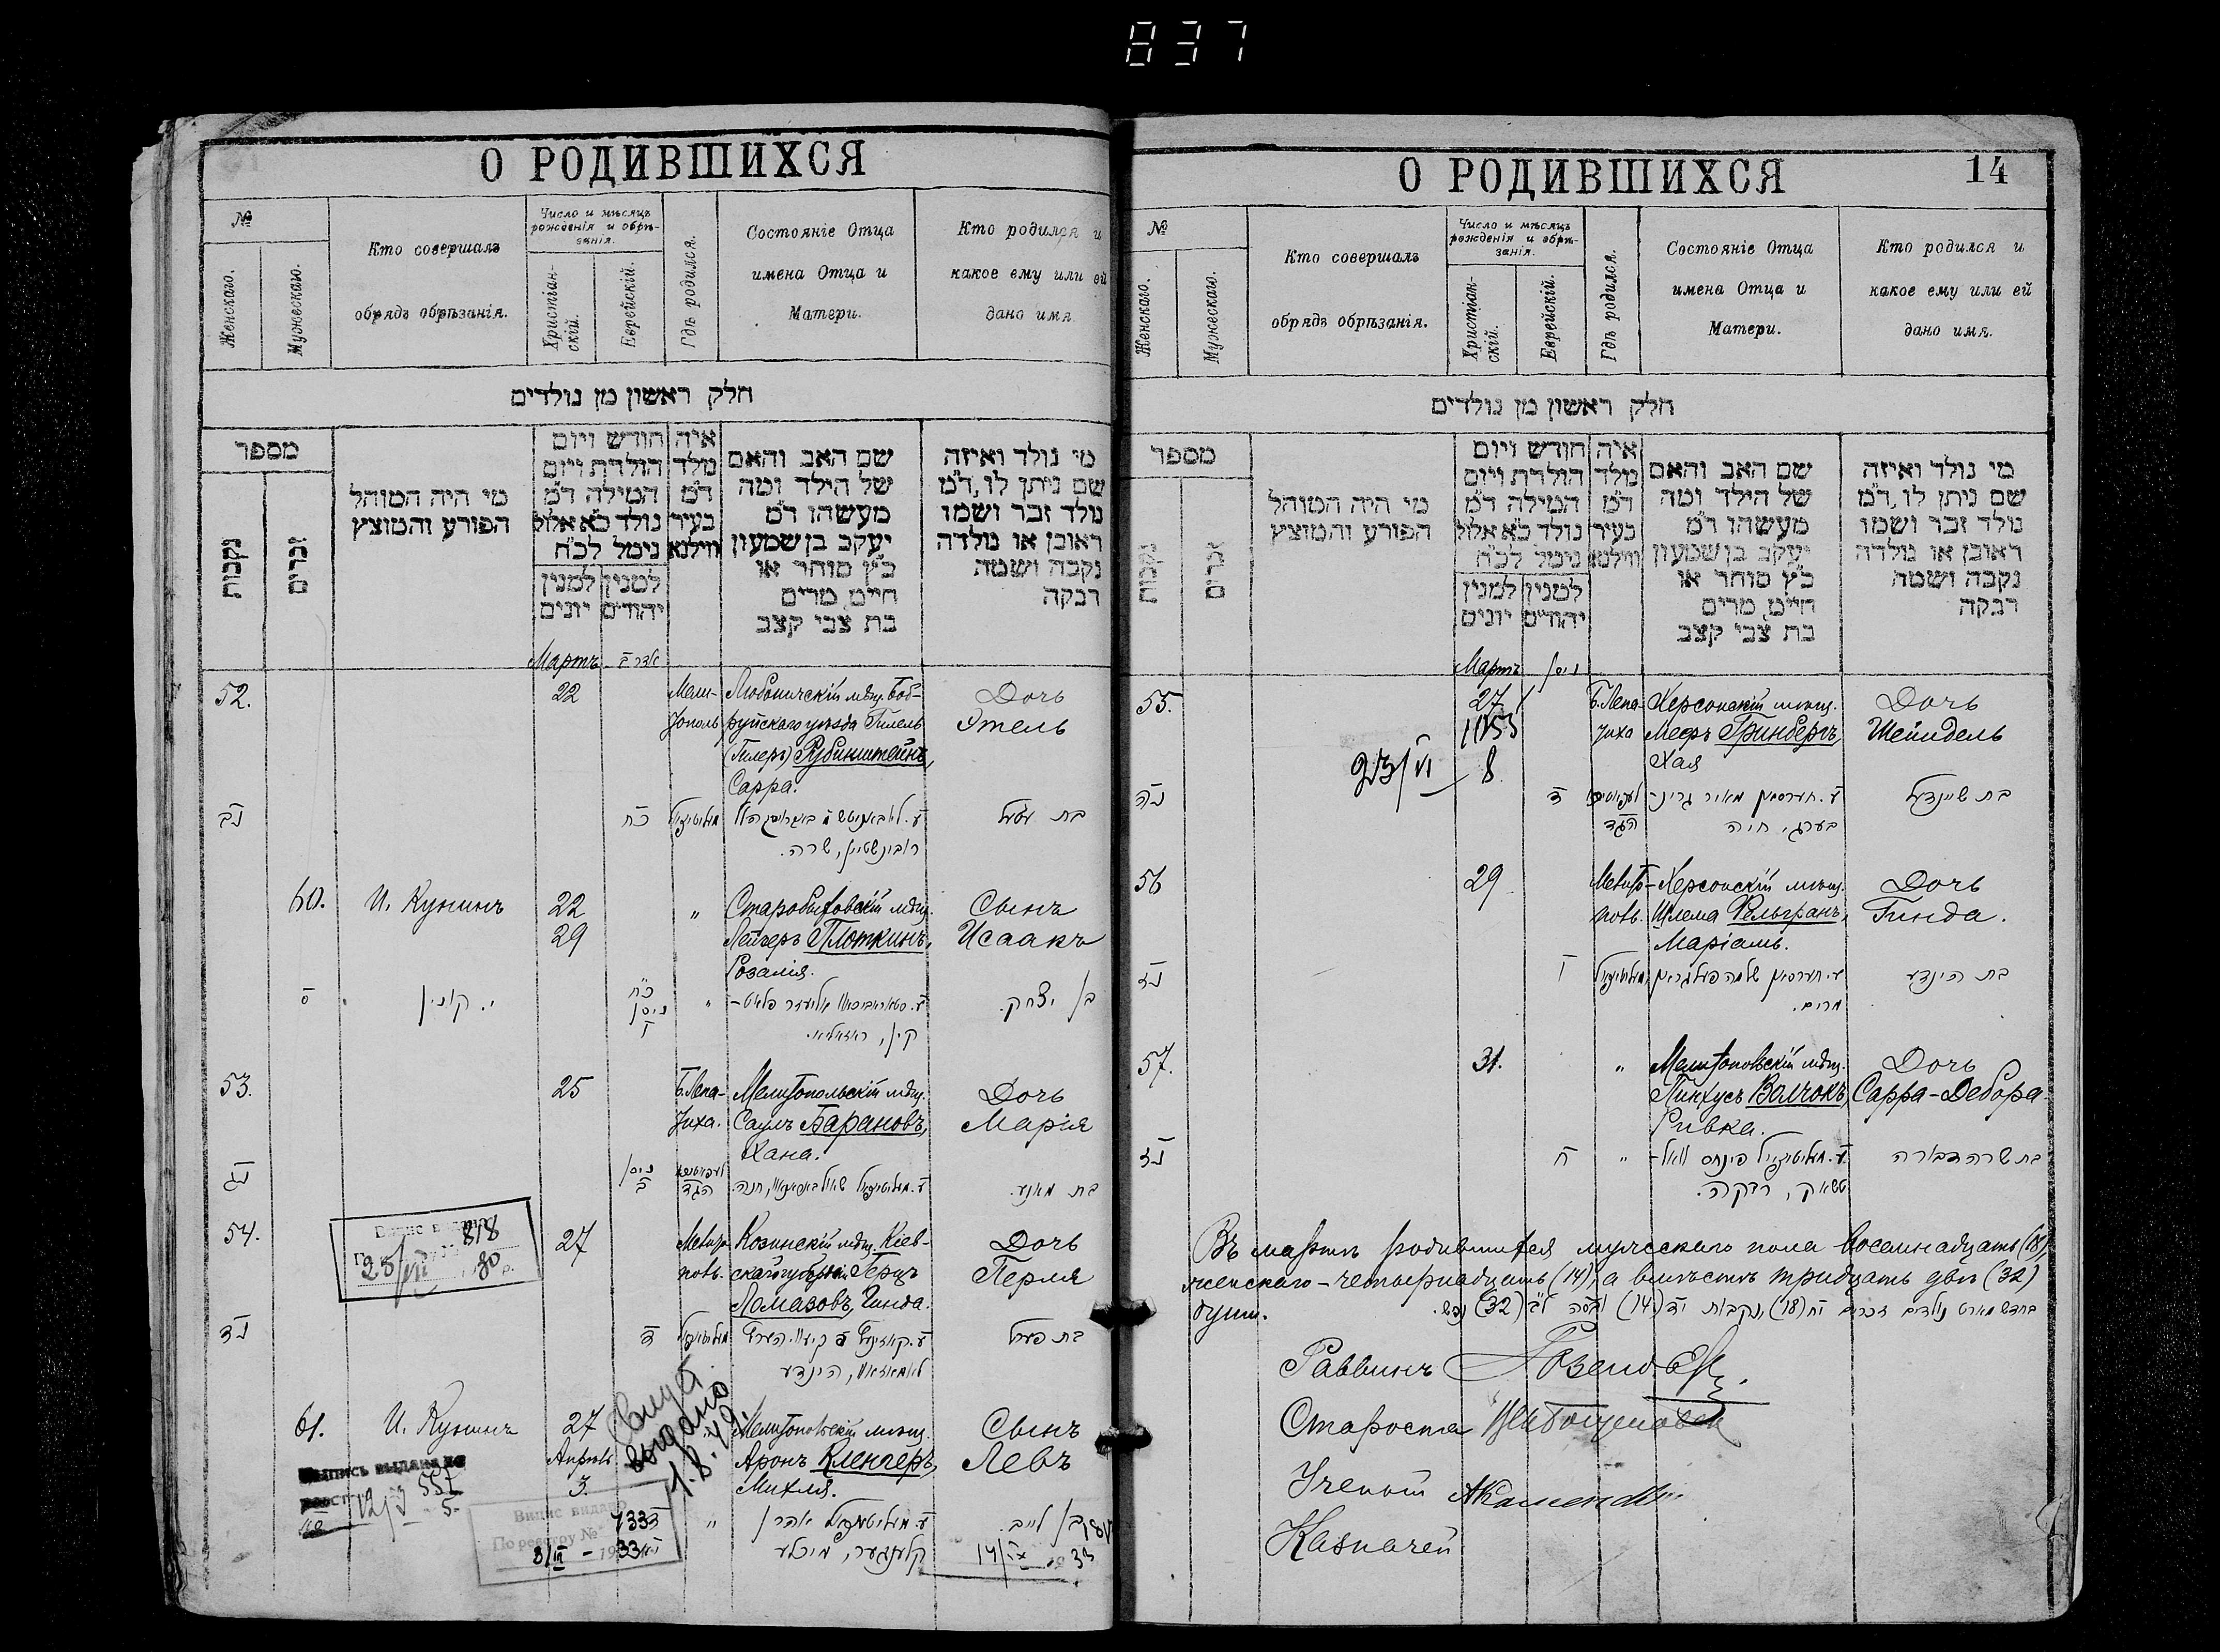 837
О РОДИВШИХСЯ
№
Женскаго.
Мужескаго.
Кто совершалъ
обрядъ обрѣзанія.
Число и мѣсяцъ
рожденія и обрѣ-
занія.
Христіан-
скій.
Еврейскій.
Гдѣ родился.
Состояніе Отца
имена Отца и
Матери.
Кто родился и
какое ему или ей
дано имя.
חלק ראשון מן נולדים
מספר
נקבות
זכרים
מי היה המוהל
הפורע והמוצץ
חודש ויום
הולדת ויום
המילה ד״מ
נולד כ״א אלול
נימל לכ״ח
למנין למנין
יהודים יונים
איה
נולד
ד״מ
בעיר
ווילנא
שם האב והאם
של הילד ומה
מעשהו ד״מ
יעקב בן שמעון
כ״ץ סוחר או
חיים, מרים
בת צבי קצב
מי נולד ואיזה
שם ניתן לו, ד״מ
נולד זכר ושמו
ראובן או נולדה
נקבה ושמה
רבקה
Мартъ אדר ב
52. 22 Мели- Любоничскій мѣщ. Боб- Дочь
тополь руйскаго уѣзда Гилель Этель
(Гилеръ) Рубинштейнъ,
Сарра.
נב כח בת עטל
רובינשטיין, שרה.
60. И. Кунинъ 22 " Старобыховскій мѣщ. Сынъ
29 Лейзеръ Плоткинъ, Исаакъ
Розалія.
ס י. קונין כ״ח " אליעזר פלאט- בן יצחק.
ניסן
קין, ראזאליא.
53. 25 Б. Лепа- Мелитопольскій мѣщ. Дочь
тиха. Саулъ Барановъ, Марія
Хана.
נג ניסן
ב שאול באראנאוו, חנה.
54. 27 Мелито- Козинскій мѣщ. Кіев- Дочь
поль. ской губерніи Герцъ Перля
Ломазовъ, Гинда.
Випис видано
818
28/VII 80 р.
נד ד בת פערל
לאמאזאוו, הינדע
61. И. Кунинъ 27 " Мелитопольскій мѣщ. Сынъ
Апрѣль Аронъ Клеперъ, Левъ
3. Михля.
выдано
1.8.49.
Выпись выдана по
557
12/V 5.
Випис видано
По реєстру № 1333
8/III - 1933
" אהרן בן לייב.
קלעפער, מיכלע
14/IX 33
О РОДИВШИХСЯ 14
№
Женскаго.
Мужескаго.
Кто совершалъ
обрядъ обрѣзанія.
Число и мѣсяцъ
рожденія и обрѣ-
занія.
Христіан-
скій.
Еврейскій.
Гдѣ родился.
Состояніе Отца
имена Отца и
Матери.
Кто родился и
какое ему или ей
дано имя.
חלק ראשון מן נולדים
מספר
נקבות
זכרים
מי היה המוהל
הפורע והמוצץ
חודש ויום
הולדת ויום
המילה ד״מ
נולד כ״א אלול
נימל לכ״ח
למנין למנין
יהודים יונים
איה
נולד
ד״מ
בעיר
ווילנא
שם האב והאם
של הילד ומה
מעשהו ד״מ
יעקב בן שמעון
כ״ץ סוחר או
חיים, מרים
בת צבי קצב
מי נולד ואיזה
שם ניתן לו, ד״מ
נולד זכר ושמו
ראובן או נולדה
נקבה ושמה
רבקה
Мартъ ניסן
55. 27 Б. Лепа- Херсонскій мѣщ. Дочь
тиха Мееръ Гринбергъ, Шейндель
Хая
23/VI 8
נה ד חערסאן מאיר גרינ- בת שיינדעל
בערג, חיה
56 29 Мелито- Херсонскій мѣщ. Дочь
поль. Шлема Фельгранъ, Гинда.
Маріамъ.
נו ו בת הינדע
מרים.
57. 31. " Мелитопольскій мѣщ. Дочь
Пинхусъ Волчокъ, Сарра-Дебора
Ривка.
נז ח " פינחס וואל- בת שרה דבורה
טשאק, רבקה.
Въ мартѣ родившихся мужескаго пола восемнадцать (18)
женскаго - четырнадцать (14), а вмѣстѣ тридцать двѣ (32)
души. בחדש מארט נולדים זכרים יח (18) ונקבות יד (14) לב (32) נפש.
Раввинъ
Староста
Ученый
Казначей